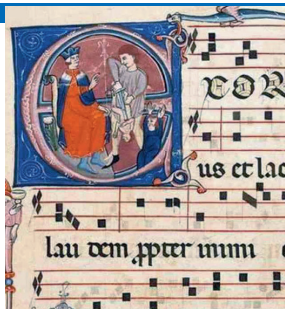 EXOR
us et lac
lau dem ꝓpter inimi